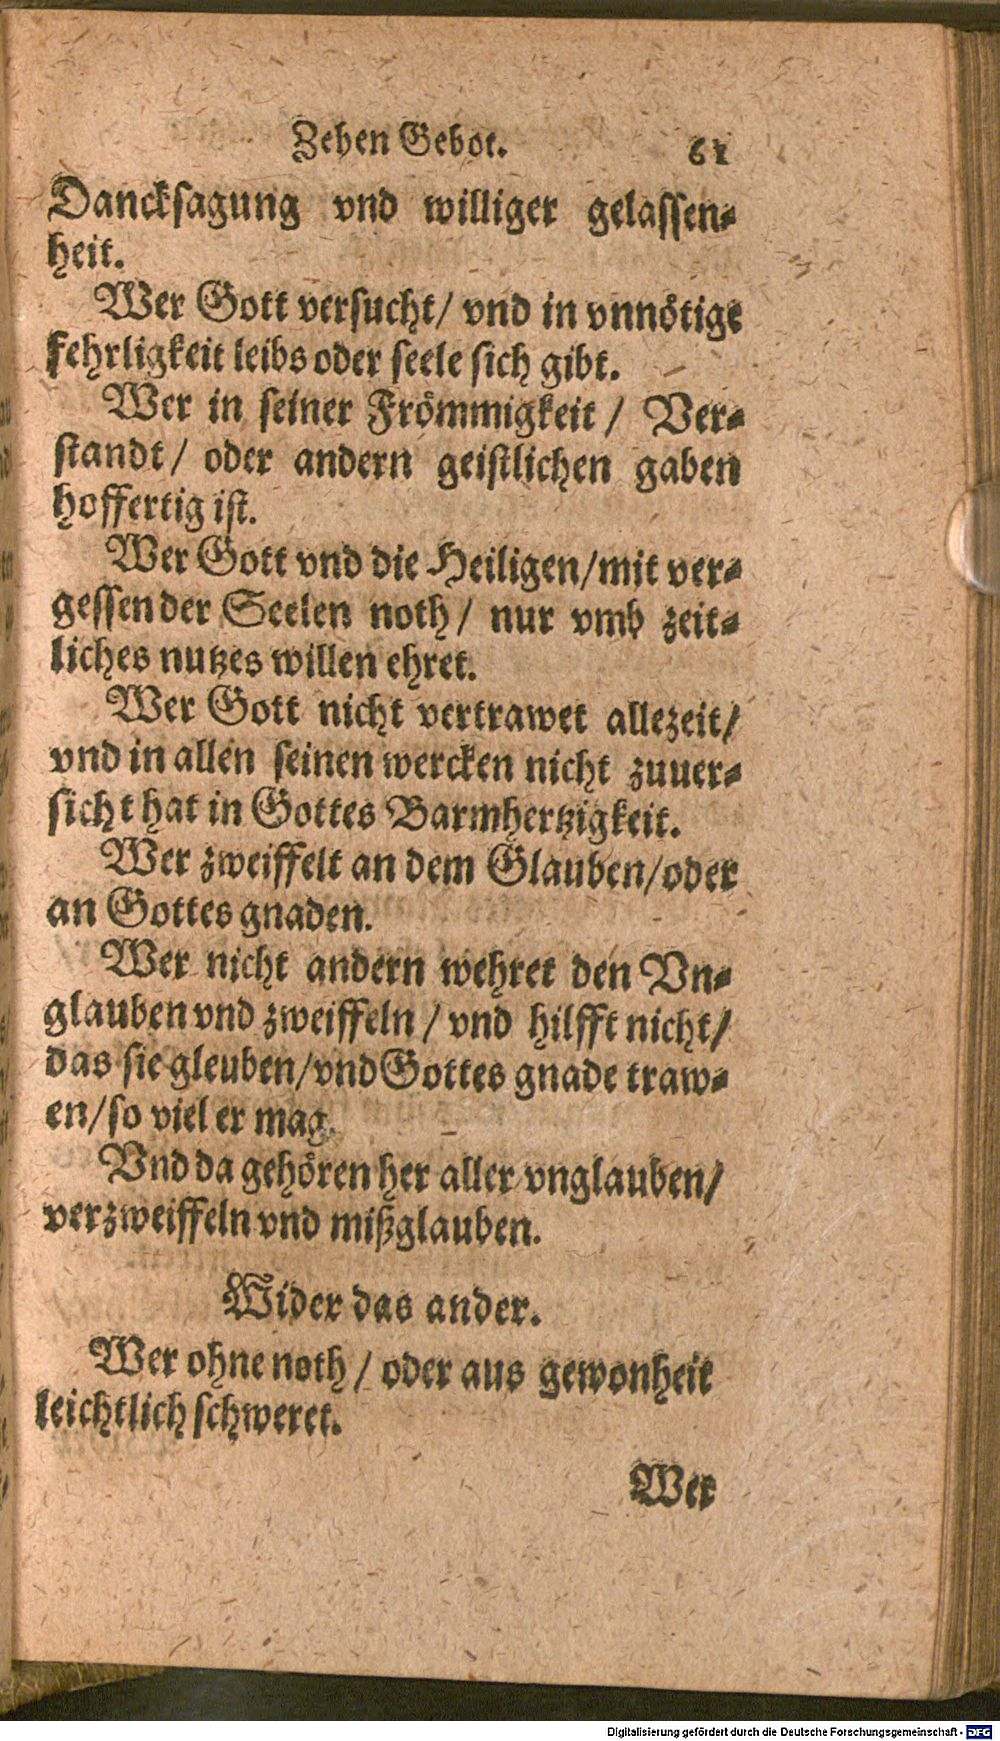 Zehen Gebot. 61
Dancksagung vnd williger gelassen-
heit.
Wer Gott versucht/ vnd in vnnötige
fehrligkeit leibs oder seele sich gibt.
Wer in seiner Frömmigkeit / Ver-
standt/ oder andern geistlichen gaben
hoffertig ist.
Wer Gott vnd die Heiligen/mit ver-
gessen der Seelen noth/ nur vmb zeit-
liches nutzes willen ehret.
Wer Gott nicht vertrawet allezeit/
vnd in allen seinen wercken nicht zuuer-
sicht hat in Gottes Barmhertzigkeit.
Wer zweiffelt an dem Glauben/oder
an Gottes gnaden.
Wer nicht andern wehret den Vn-
glauben vnd zweiffeln / vnd hilfft nicht/
das sie gleuben/vnd Gottes gnade traw-
en/so viel er mag.
Vnd da gehören her aller vnglauben/
verzweiffeln vnd mißglauben.
Wider das ander.
Wer ohne noth / oder aus gewonheit
leichtlich schweret.
Wer
Digitalisierung gefördert durch die Deutsche Forschungsgemeinschaft - DFG